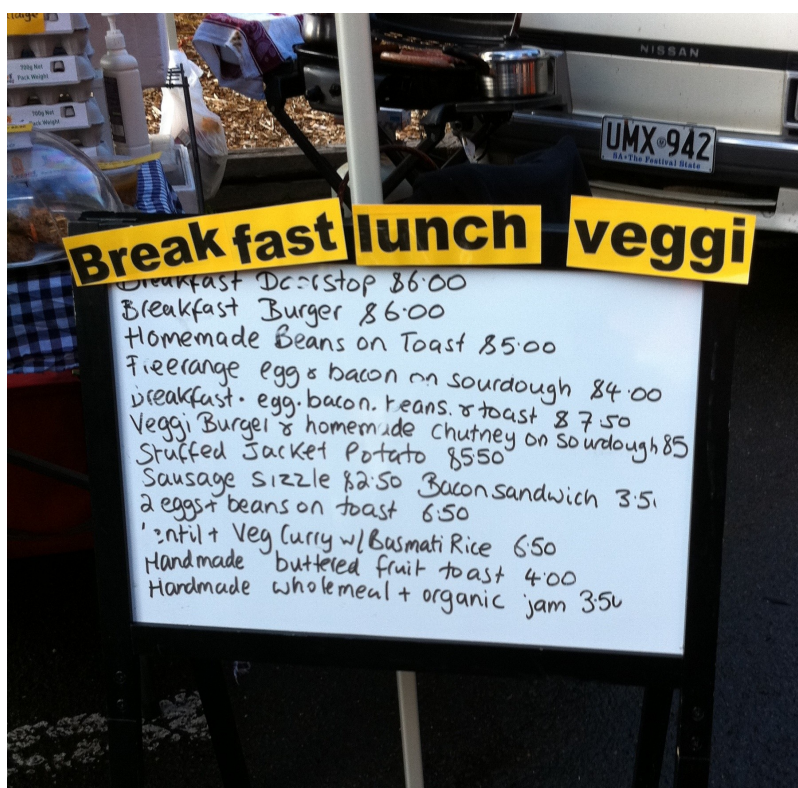 700g Net
Pack Weight
700g Net
Pack Weight
NISSAN
UMX 942
SA·The Festival State
Breakfast lunch veggi
Breakfast Doorstop $6.00
Breakfast Burger $6.00
Homemade Beans on Toast $5.00
Freerange egg & bacon on sourdough $4.00
Breakfast. egg. bacon. beans. & toast $7.50
Veggi Burger & homemade chutney on sourdough $5
Stuffed Jacket Potato $5.50
Sausage Sizzle $2.50 Bacon sandwich 3.50
2 eggs + beans on toast 6.50
Lentil + Veg Curry w/ Basmati Rice 6.50
Handmade buttered fruit toast 4.00
Handmade wholemeal + organic jam 3.50